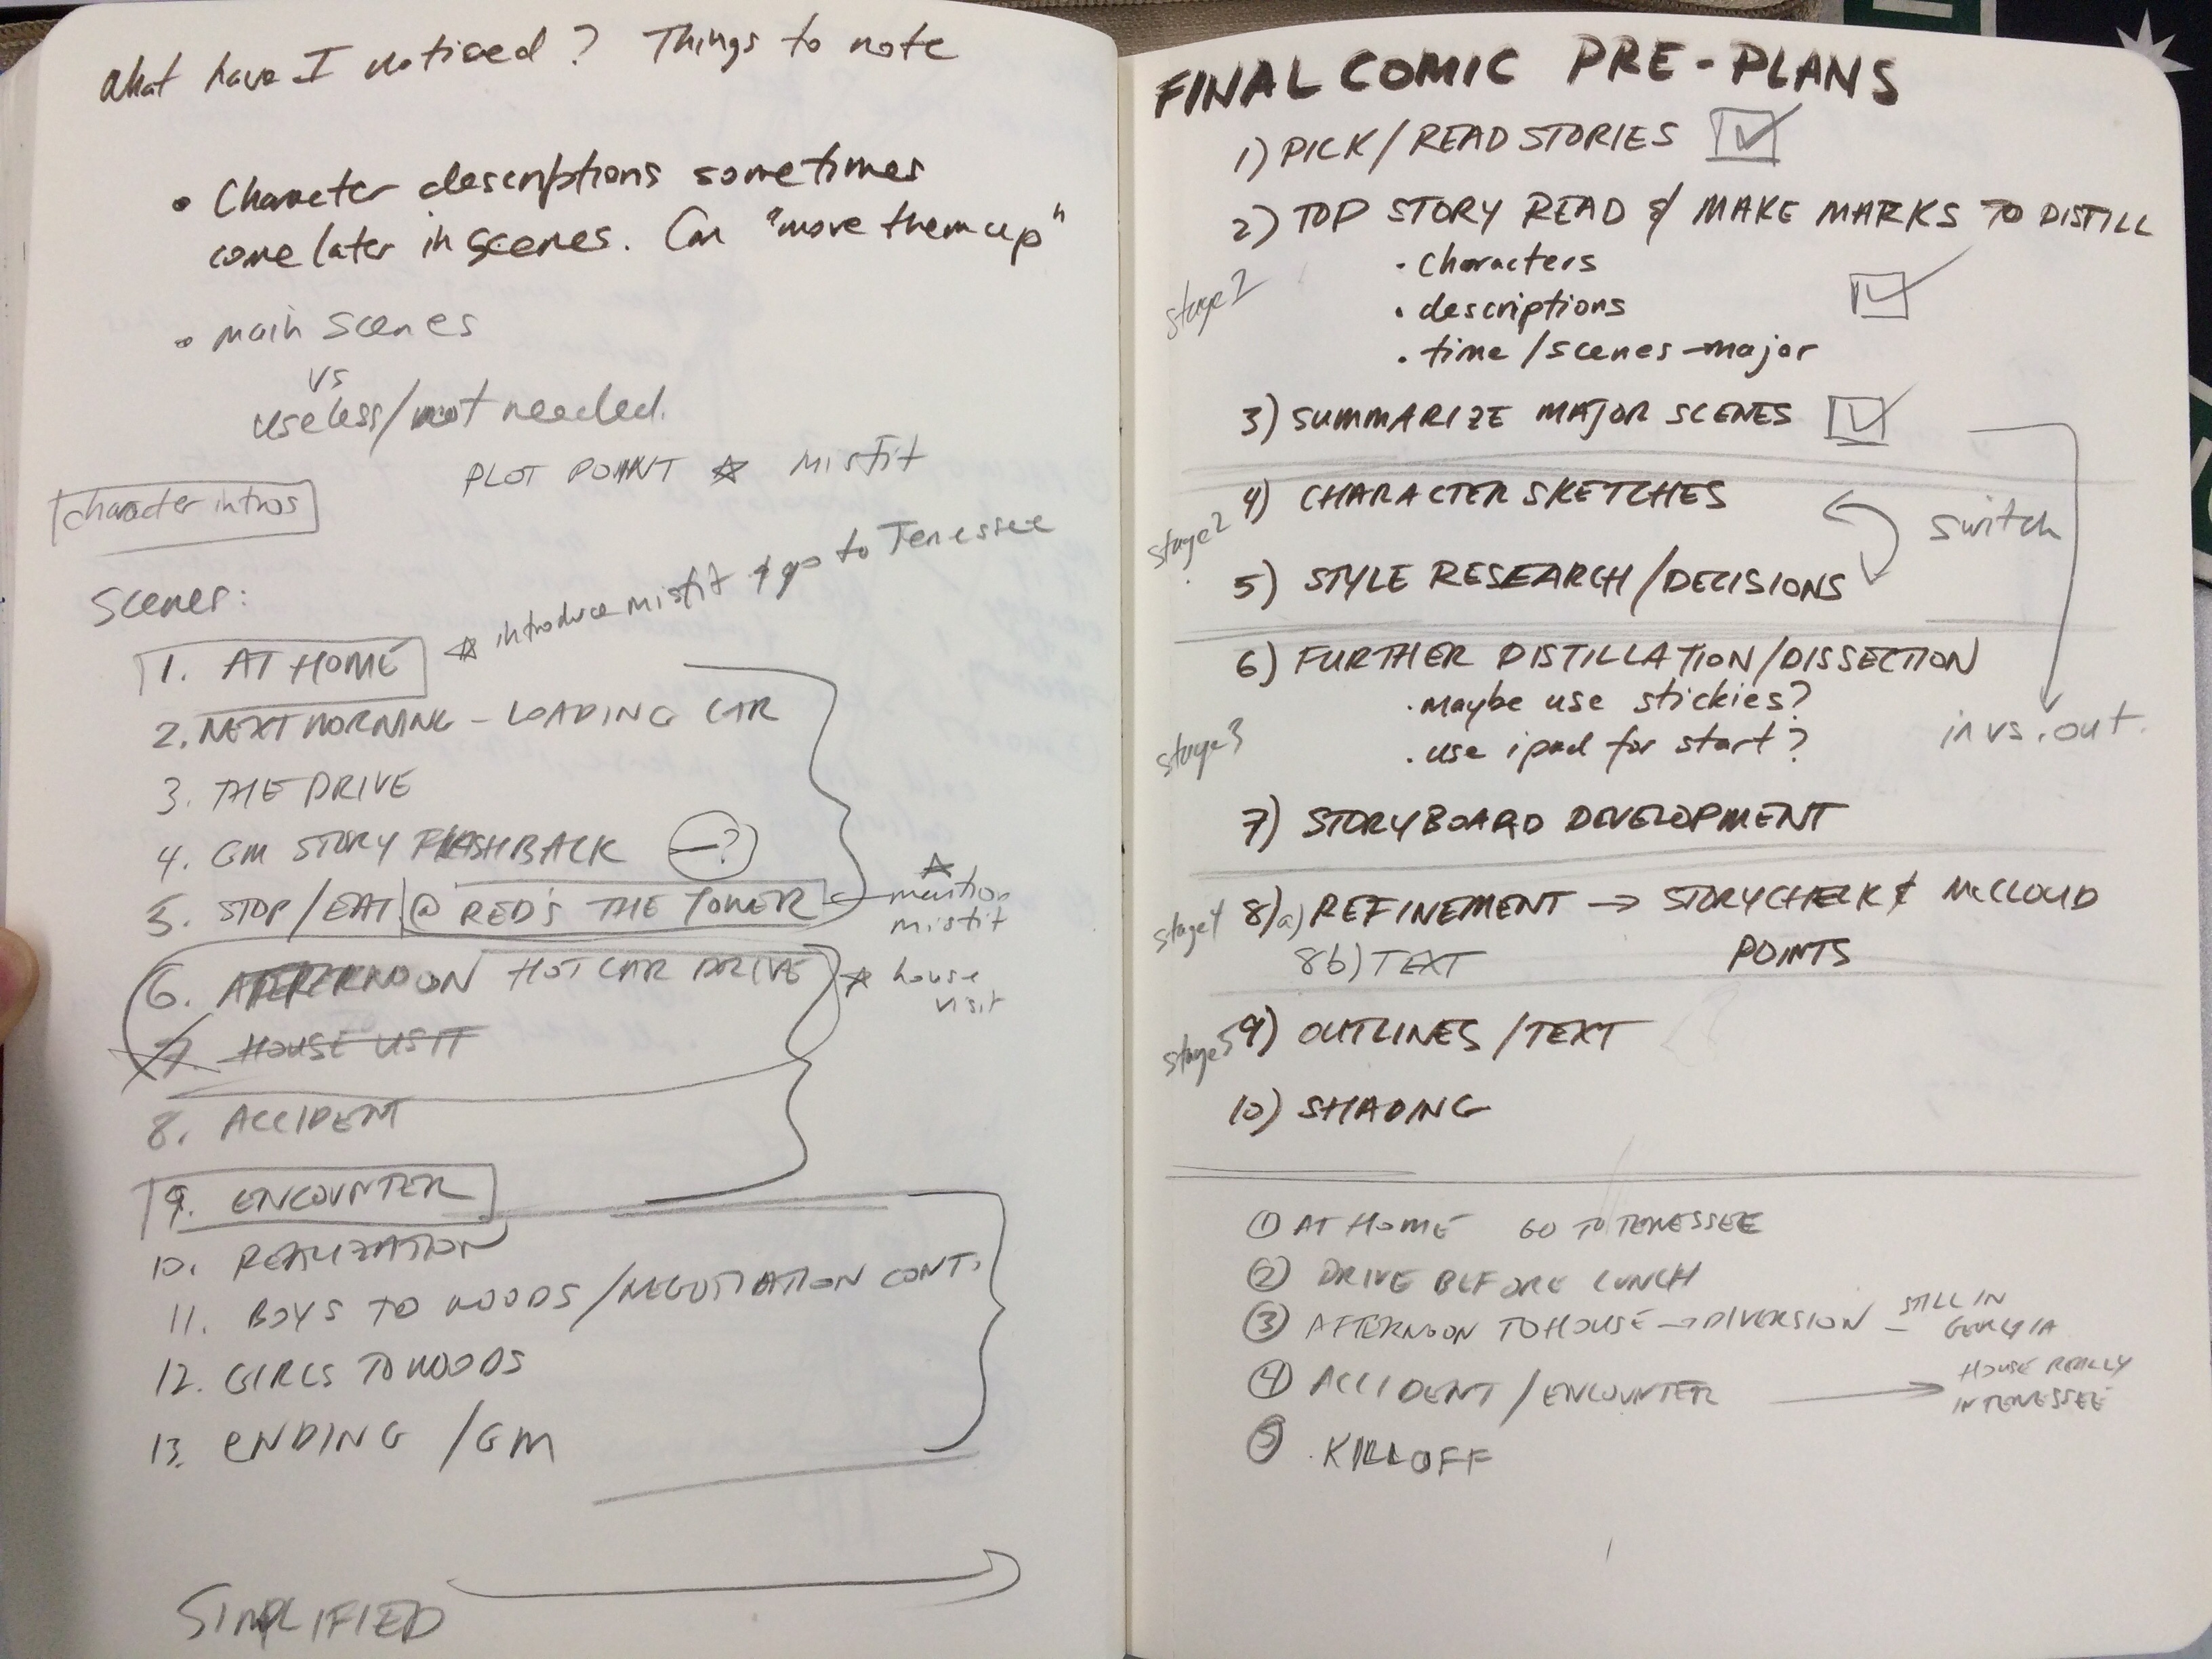 What have I noticed? Things to note
• Character descriptions sometimes
come later in scenes. Can "move them up"
• main scenes
vs
useless/not needed.
PLOT POINT ☆ MISFIT
character intros
Scenes:
☆ introduce misfit & go to Tenessee
1. AT HOME
2. NEXT MORNING - LOADING CAR
3. THE DRIVE
4. GM STORY FLASHBACK —?
5. STOP/EAT @ RED'S THE TOWER
☆ mention
misfit
6. AFTERNOON HOT CAR DRIVE
☆ house
visit
7. HOUSE VISIT
8. ACCIDENT
9. ENCOUNTER
10. REALIZATION
11. BOYS TO WOODS/NEGOTIATION CONT.
12. GIRLS TO WOODS
13. ENDING /GM
SIMPLIFIED
FINAL COMIC PRE-PLANS
1) PICK/READ STORIES
2) TOP STORY READ & MAKE MARKS TO DISTILL
• Characters
• descriptions
• time/scenes-major
3) SUMMARIZE MAJOR SCENES
4) CHARACTER SKETCHES
stage 2
switch
5) STYLE RESEARCH/DECISIONS
6) FURTHER DISTILLATION/DISSECTION
• maybe use stickies?
• use ipad for start?
in vs. out.
stage 3
7) STORYBOARD DEVELOPMENT
stage 4
8)a) REFINEMENT → STORYCHECK & McCLOUD
POINTS
8b) TEXT
stage 5
9) OUTLINES/TEXT
10) SHADING
① AT HOME GO TO TENESSEE
② DRIVE BEFORE LUNCH
③ AFTERNOON TO HOUSE → DIVERSION - STILL IN
GEORGIA
④ ACCIDENT/ENCOUNTER → HOUSE REALLY
IN TENESSEE
⑤ KILL OFF